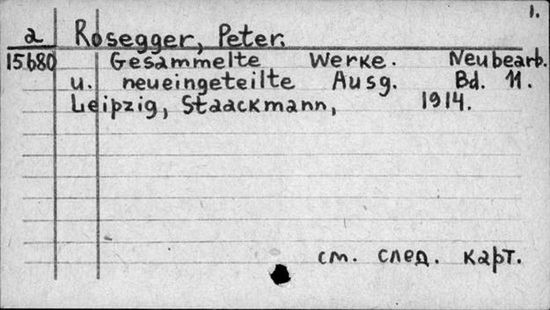 1.
a Rosegger, Peter.
15680 Gesammelte Werke. Neubearb.
u. neueingeteilte Ausg. Bd. 11.
Leipzig, Staackmann, 1914.
см. след. карт.